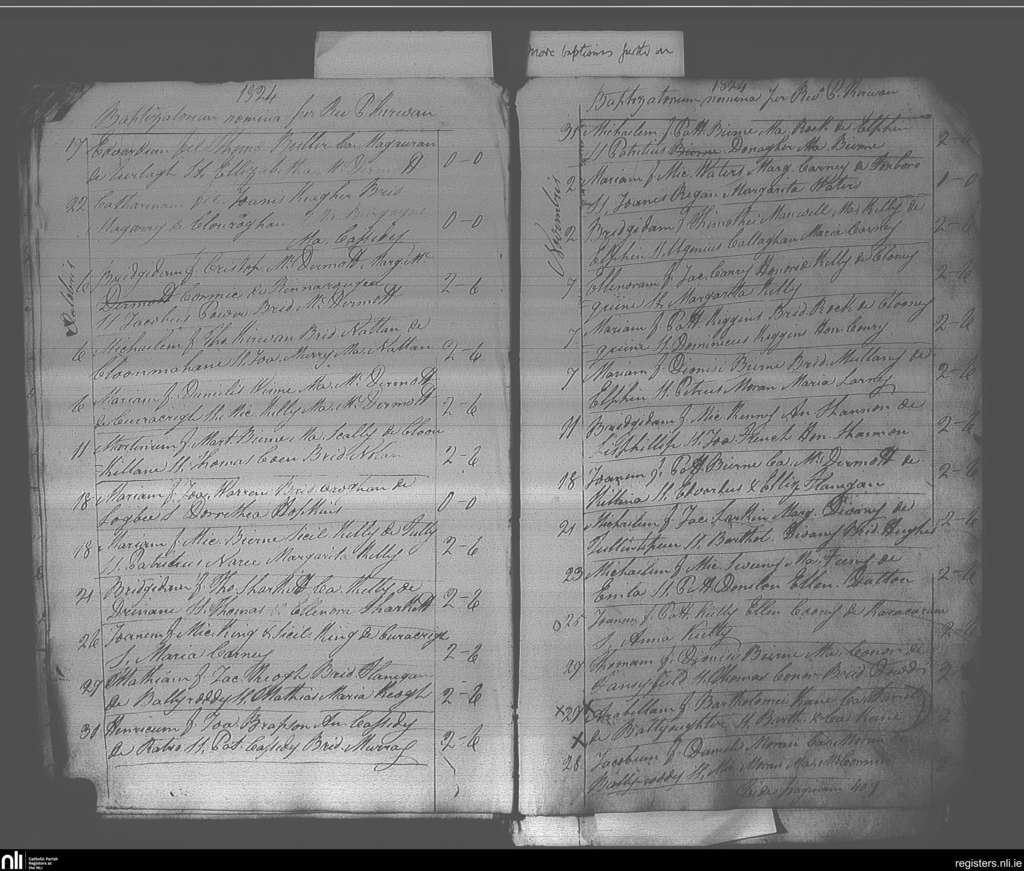 More baptisms further on
1824
Baptizatorum nomina per Rev P. Kirwan
17 Edvardum fil Thoma Butler An Magauran
de Turlagh St. Ellizabetha McDermott 0-0
22 Catharinam fil Joanis Meagher Brid
Magarry de Clouraghan
Ma. Cassidy 0-0
Octobris
6 Bridgidam f Cristop. McDermott, Marg. Mc
Dermott Cormic de Kinnarouga
St Jacobus Power Brid. McDermott 2-6
6 Michaelem f Tho Kirwan Brid. Nattan de
Cloonmahane St. Joa. Murry Ma. Nattan 2-6
6 Mariam f Danielis Beirne Ma. McDermott
de Curacreigh St. Mic. Killy Ma. McDermott 2-6
11 Martinum f Mart. Birne Ma. Scally de Cloon
Killane St. Thomas Coen Brid. Nolan 2-6
18 Mariam f Joa. Warren Brid. Croghan de
Logbee S Dorrithea Hopkins 0-0
18 Mariam f Mic. Birne Sicil Killy de
St. Patricius Naree Margarita Killy 2-6
21 Bridgidam f Tho Sharkett Ca. Killy de
Drinane St. Thomas & Elinora Sharkett 2-6
26 Joanem f Mic. King & Sicil King de Curacreigh
S. Maria Carney 2-6
27 Mathiam f Jac. Keogh Brid. Flanagan
de Ballyroddy St. Mathias Maria Keogh 2-6
31 Henricum f Joa. Brapson An Cassidy
de Ratro St. Pat. Cassidy Brid. Murray 2-6
1824
Baptizatorum nomina per Rev. P. Kirwan
31 Michaelem f Patt. Birne Ma. Rock de Elphin
St Patritius Birne Donagher Ma Birne 2-6
Novembris
2 Mariam f Mic. Waters Marg. Carney de
St. Joanes Regan Margarita Waters 0-0
2 Bridgidam f Thimothei Maxwell Ma. Killy de
Elphin St. Ugenius Callaghan Maria Carney 2-6
7 Ellenoram f Jac. Canry Honora Killy de Clooney
quinne St. Margarita Killy 2-6
7 Mariam f Patt Higgins Brid. Rock de Clooney
quinne St. Dominicus Higgins Hon. Conry 2-6
7 Mariam f Dionisi Birne Brid. Mullany de
Elphin St. Petrus Moran Maria Larney 2-6
11 Bridgidam f Mic. Kenney An Shannon de
Lisphillip St. Joa. French Hon. Shannon 2-6
18 Joanem f Patt Birne Ca. McDermott de
Killina St. Edvardus & Elliz Flanagan 2-6
21 Michaelem f Jac. Larkin Marg. Divany de
St. Barthol. Divany Brid. Hughes 2-6
23 Michaelem f Mic. Sweeny Ma. Feeny de
Emla St. Patt Donelon Ellen Dalton 2-6
25 Joanem f Patt Kielly Ellen Coony de
S. Anna Kielly 2-6
27 Thomam f Dionisi Birne Ma. Conor de
Cansyfield St. Thomas Conor Brid. Dowd 2
x 27 x Archillam f Bartholomei Kane Ca.
x de Ballyeighter St. Barth. & Ca. Kane
28 Jacobum f Danielis Moran Ca.
Ballyroddy St. Moran Ma. McCormic
Vide paginam 409
nli
Catholic Parish
Registers at
the NLI
registers.nli.ie